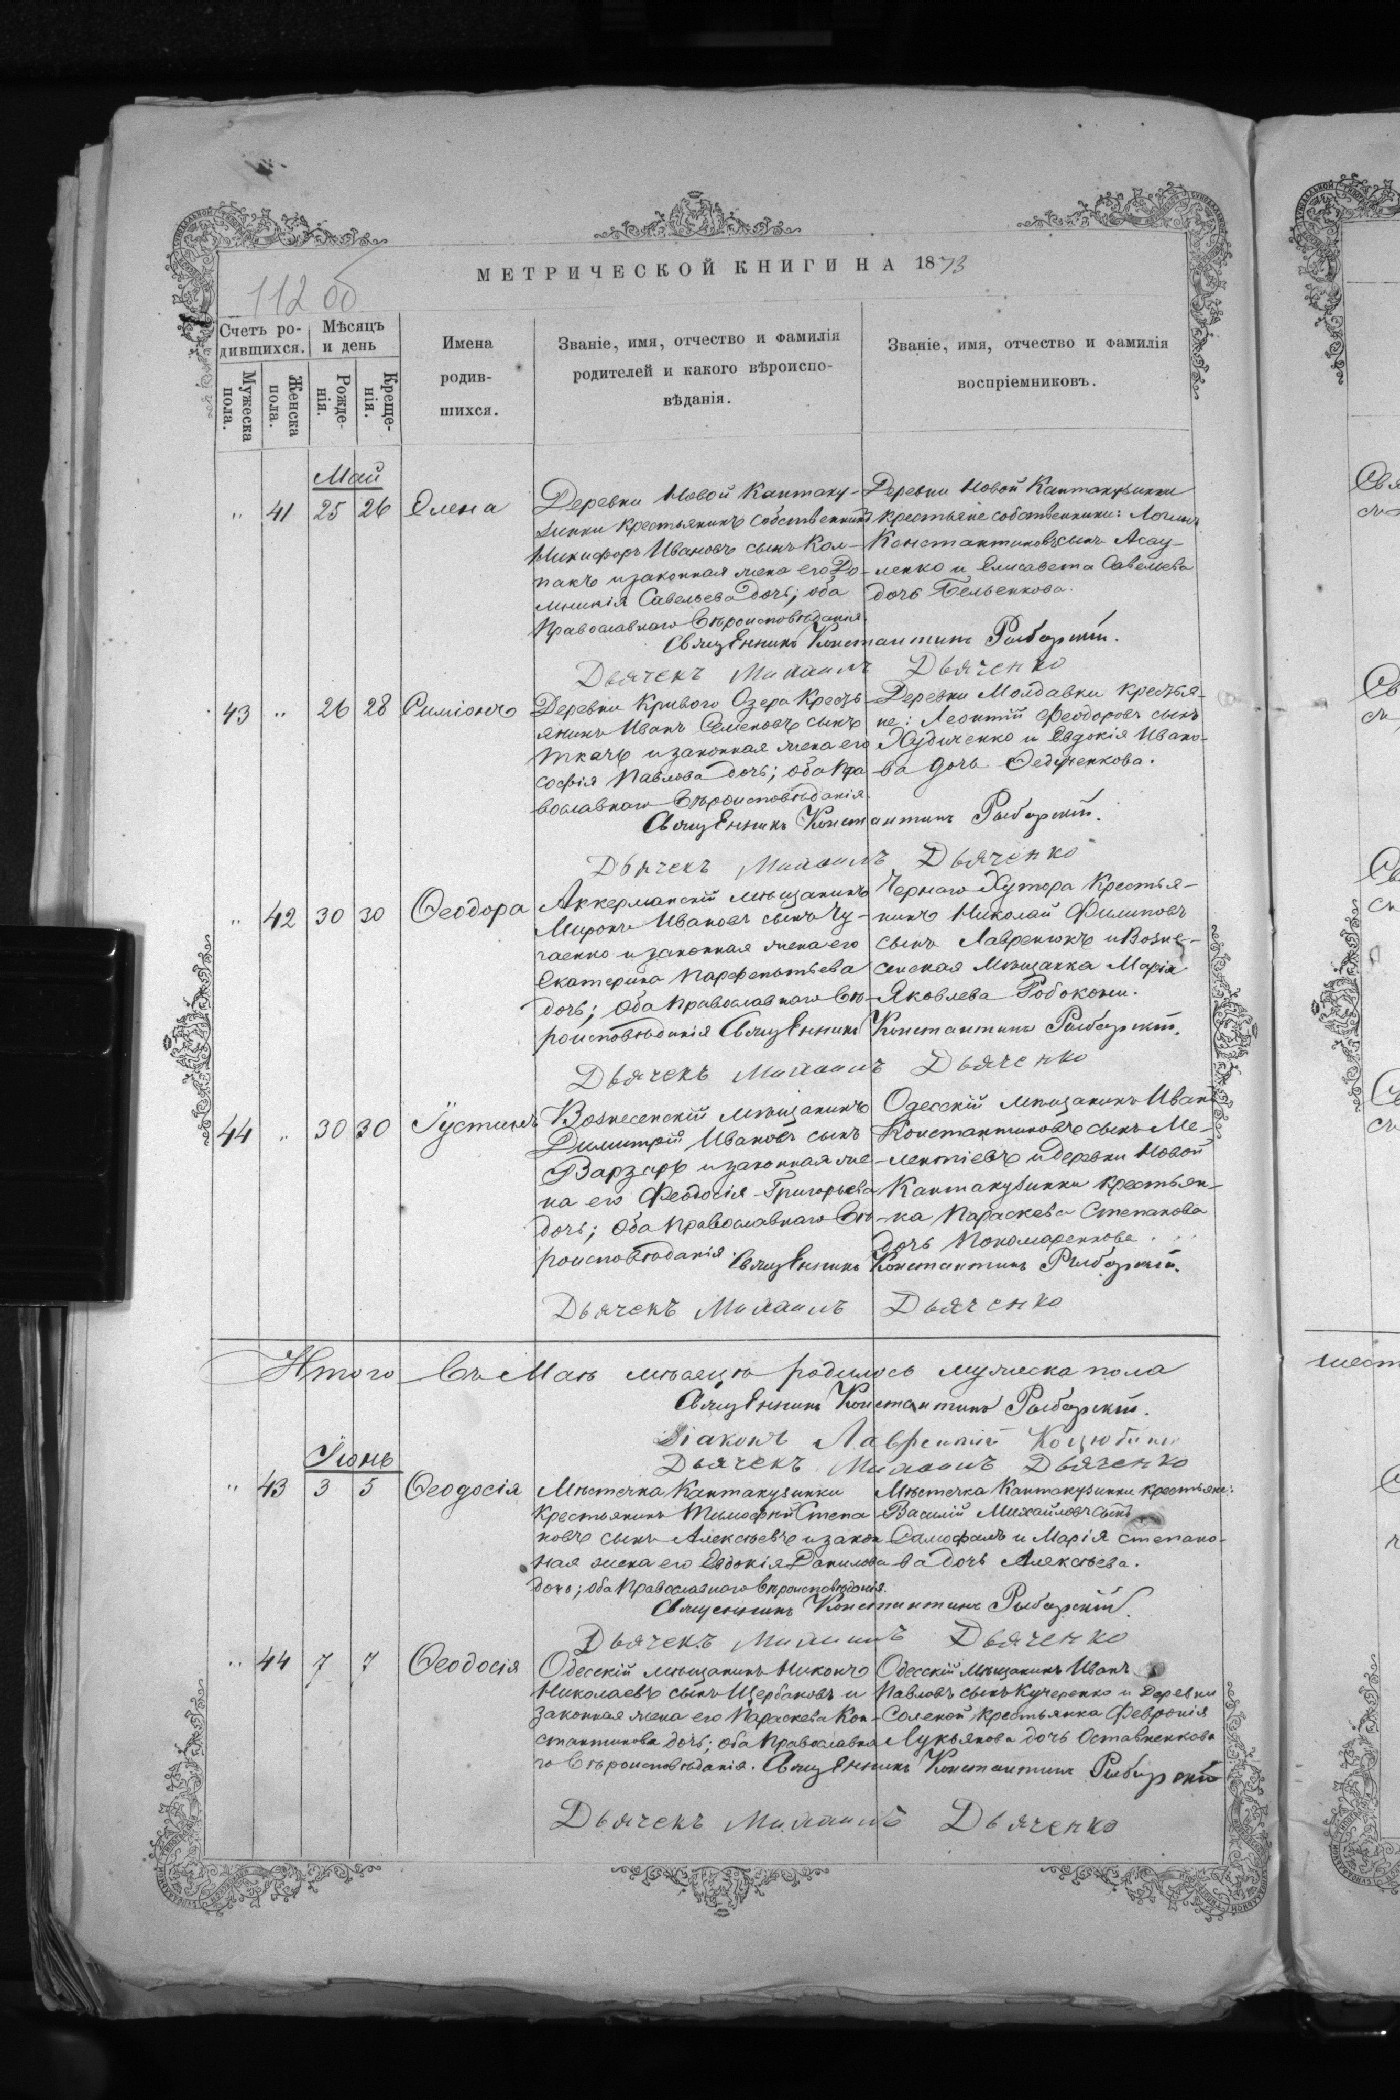 МЕТРИЧЕСКОЙ КНИГИ НА 1873
112 об
Счетъ ро-
дившихся.
Мѣсяцъ
и день
Мужеска
пола.
Женска
пола.
Рожде-
нія.
Креще-
нія.
Имена
родив-
шихся.
Званіе, имя, отчество и фамилія
родителей и какого вѣроиспо-
вѣданія.
Званіе, имя, отчество и фамилія
воспріемниковъ.
Май
" 41 25 26 Елена
Деревни Новой Кантаку-
зинки крестьянинъ собственникъ
Никифоръ Ивановъ сынъ Кол-
пакъ и законная жена его До-
мникія Савельева дочь; оба
Православнаго Вѣроисповѣданія.
Деревни Новой Кантакузинки
крестьяне собственники: Логинъ
Константиновъ сынъ Асау-
ленко и Елисавета Савельева
дочь Бельенкова.
Священникъ Константинъ Рыбарскій.
Дьячекъ Михаилъ Дьяченко
43 " 26 28 Симіонъ
Деревни Кривого Озера Кресть-
янинъ Иванъ Семеновъ сынъ
Ткачъ и законная жена его
Софія Павлова дочь; оба Пра
вославнаго Вѣроисповѣданія.
Деревни Молдавки крестья-
не: Леонтій Феодоровъ сынъ
Худиченко и Евдокія Ивано-
ва дочь Федученкова.
Священникъ Константинъ Рыбарскій.
Дьячекъ Михаилъ Дьяченко
" 42 30 30 Ѳеодора
Аккерманскій мѣщанинъ
Миронъ Ивановъ сынъ Чу-
гаенко и законная жена его
Екатерина Парфентьева
дочь; оба Православнаго Вѣ-
роисповѣданія
Чернаго Хутора Крестья-
нинъ Николай Филиповъ
сынъ Лавренюкъ и Возне-
сенская Мѣщанка Марія
Яковлева Робоконь.
Священникъ Константинъ Рыбарскій.
Дьячекъ Михаилъ Дьяченко
44 " 30 30 Іустинъ
Вознесенскій мѣщанинъ
Димитрій Ивановъ сынъ
Варзарь и законная же-
на его Феодосія Григорьева
дочь; оба Православнаго Вѣ-
роисповѣданія
Одесскій мѣщанинъ Иванъ
Константиновъ сынъ Ме-
лентіевъ и деревни Новой
Кантакузинки крестьян-
ка Параскева Степанова
дочь Пономаренкова.
Священникъ Константинъ Рыбарскій.
Дьячекъ Михаилъ Дьяченко
Итого въ Маѣ мѣсяцѣ родилось мужеска пола
Священникъ Константинъ Рыбарскій.
Діаконъ Лаврентій
Дьячекъ Михаилъ Дьяченко
Іюнь
" 43 3 5 Ѳеодосія
Мѣстечка Кантакузинки
Крестьянинъ Тимофей Степа
новъ сынъ Алексѣевъ и закон
ная жена его Евдокія Данилова
дочь; оба Православнаго Вѣроисповѣданія.
Мѣстечка Кантакузинки крестьяне:
Василій Михайловъ сынъ
Самофалъ и Марія Степано-
ва дочь Алексѣева.
Священникъ Константинъ Рыбарскій.
Дьячекъ Михаилъ Дьяченко
" 44 7 7 Ѳеодосія
Одесскій мѣщанинъ Никонъ
Николаевъ сынъ Щербаковъ и
законная жена его Параскева Кон-
стантинова дочь; оба Православна
го Вѣроисповѣданія.
Одесскій Мѣщанинъ Иванъ
Павловъ сынъ Кучеренко и Деревни
Соленой крестьянка Февронія
Лукьянова дочь Оставненкова
Священникъ Константинъ Рыбарскій
Дьячекъ Михаилъ Дьяченко